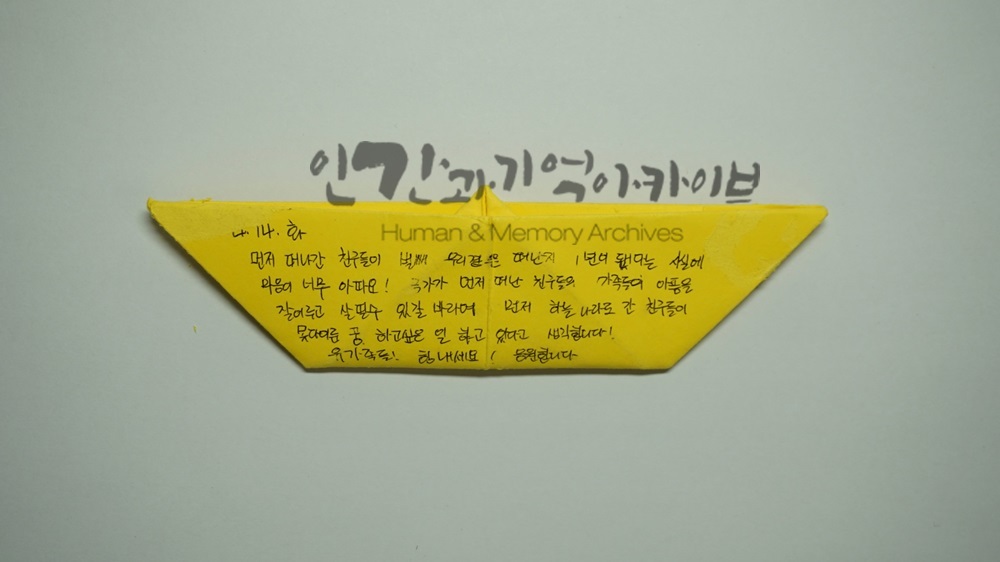 인간과기억아카이브
Human & Memory Archives
4. 14. 화
먼저 떠나간 친구들이 벌써 우리곁을 떠난지 1년이 됐다는 사실에
마음이 너무 아파요! 국가가 먼저 떠난 친구들의 가족들의 아픔을
잘어루고 살필수 있길 바라며 먼저 하늘 나라로 간 친구들이
못다이룬 꿈, 하고싶은 일 하고 있다고 생각합니다!
유가족들! 힘내세요! 응원합니다